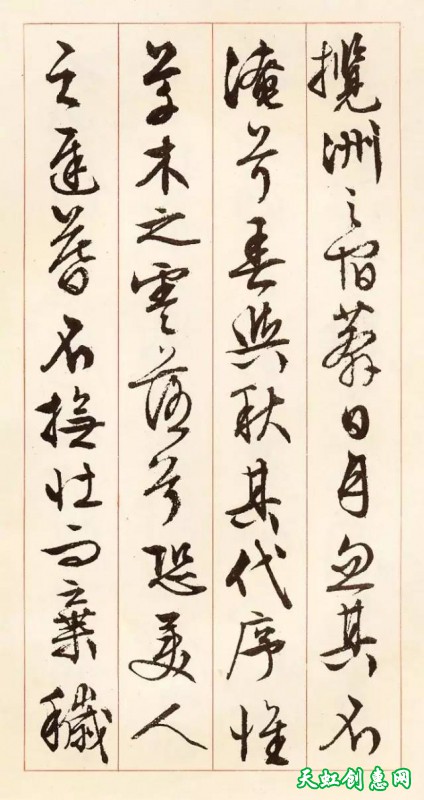 攬洲之宿莽日月忽其不
淹兮春與秋其代序惟
草木之零落兮恐美人
之遲暮不撫壯而棄穢
天虹创惠网